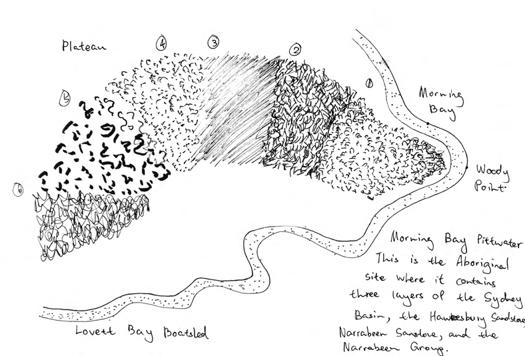 Plateau
④
③
②
①
⑤
⑥
Morning
Bay
Woody
Point
Morning Bay Pittwater
This is the Aboriginal
site where it contains
three layers of the Sydney
Basin, the Hawkesbury Sandstone
Narrabeen Sanstone, and the
Narrabeen Group.
Lovett Bay Boatsled